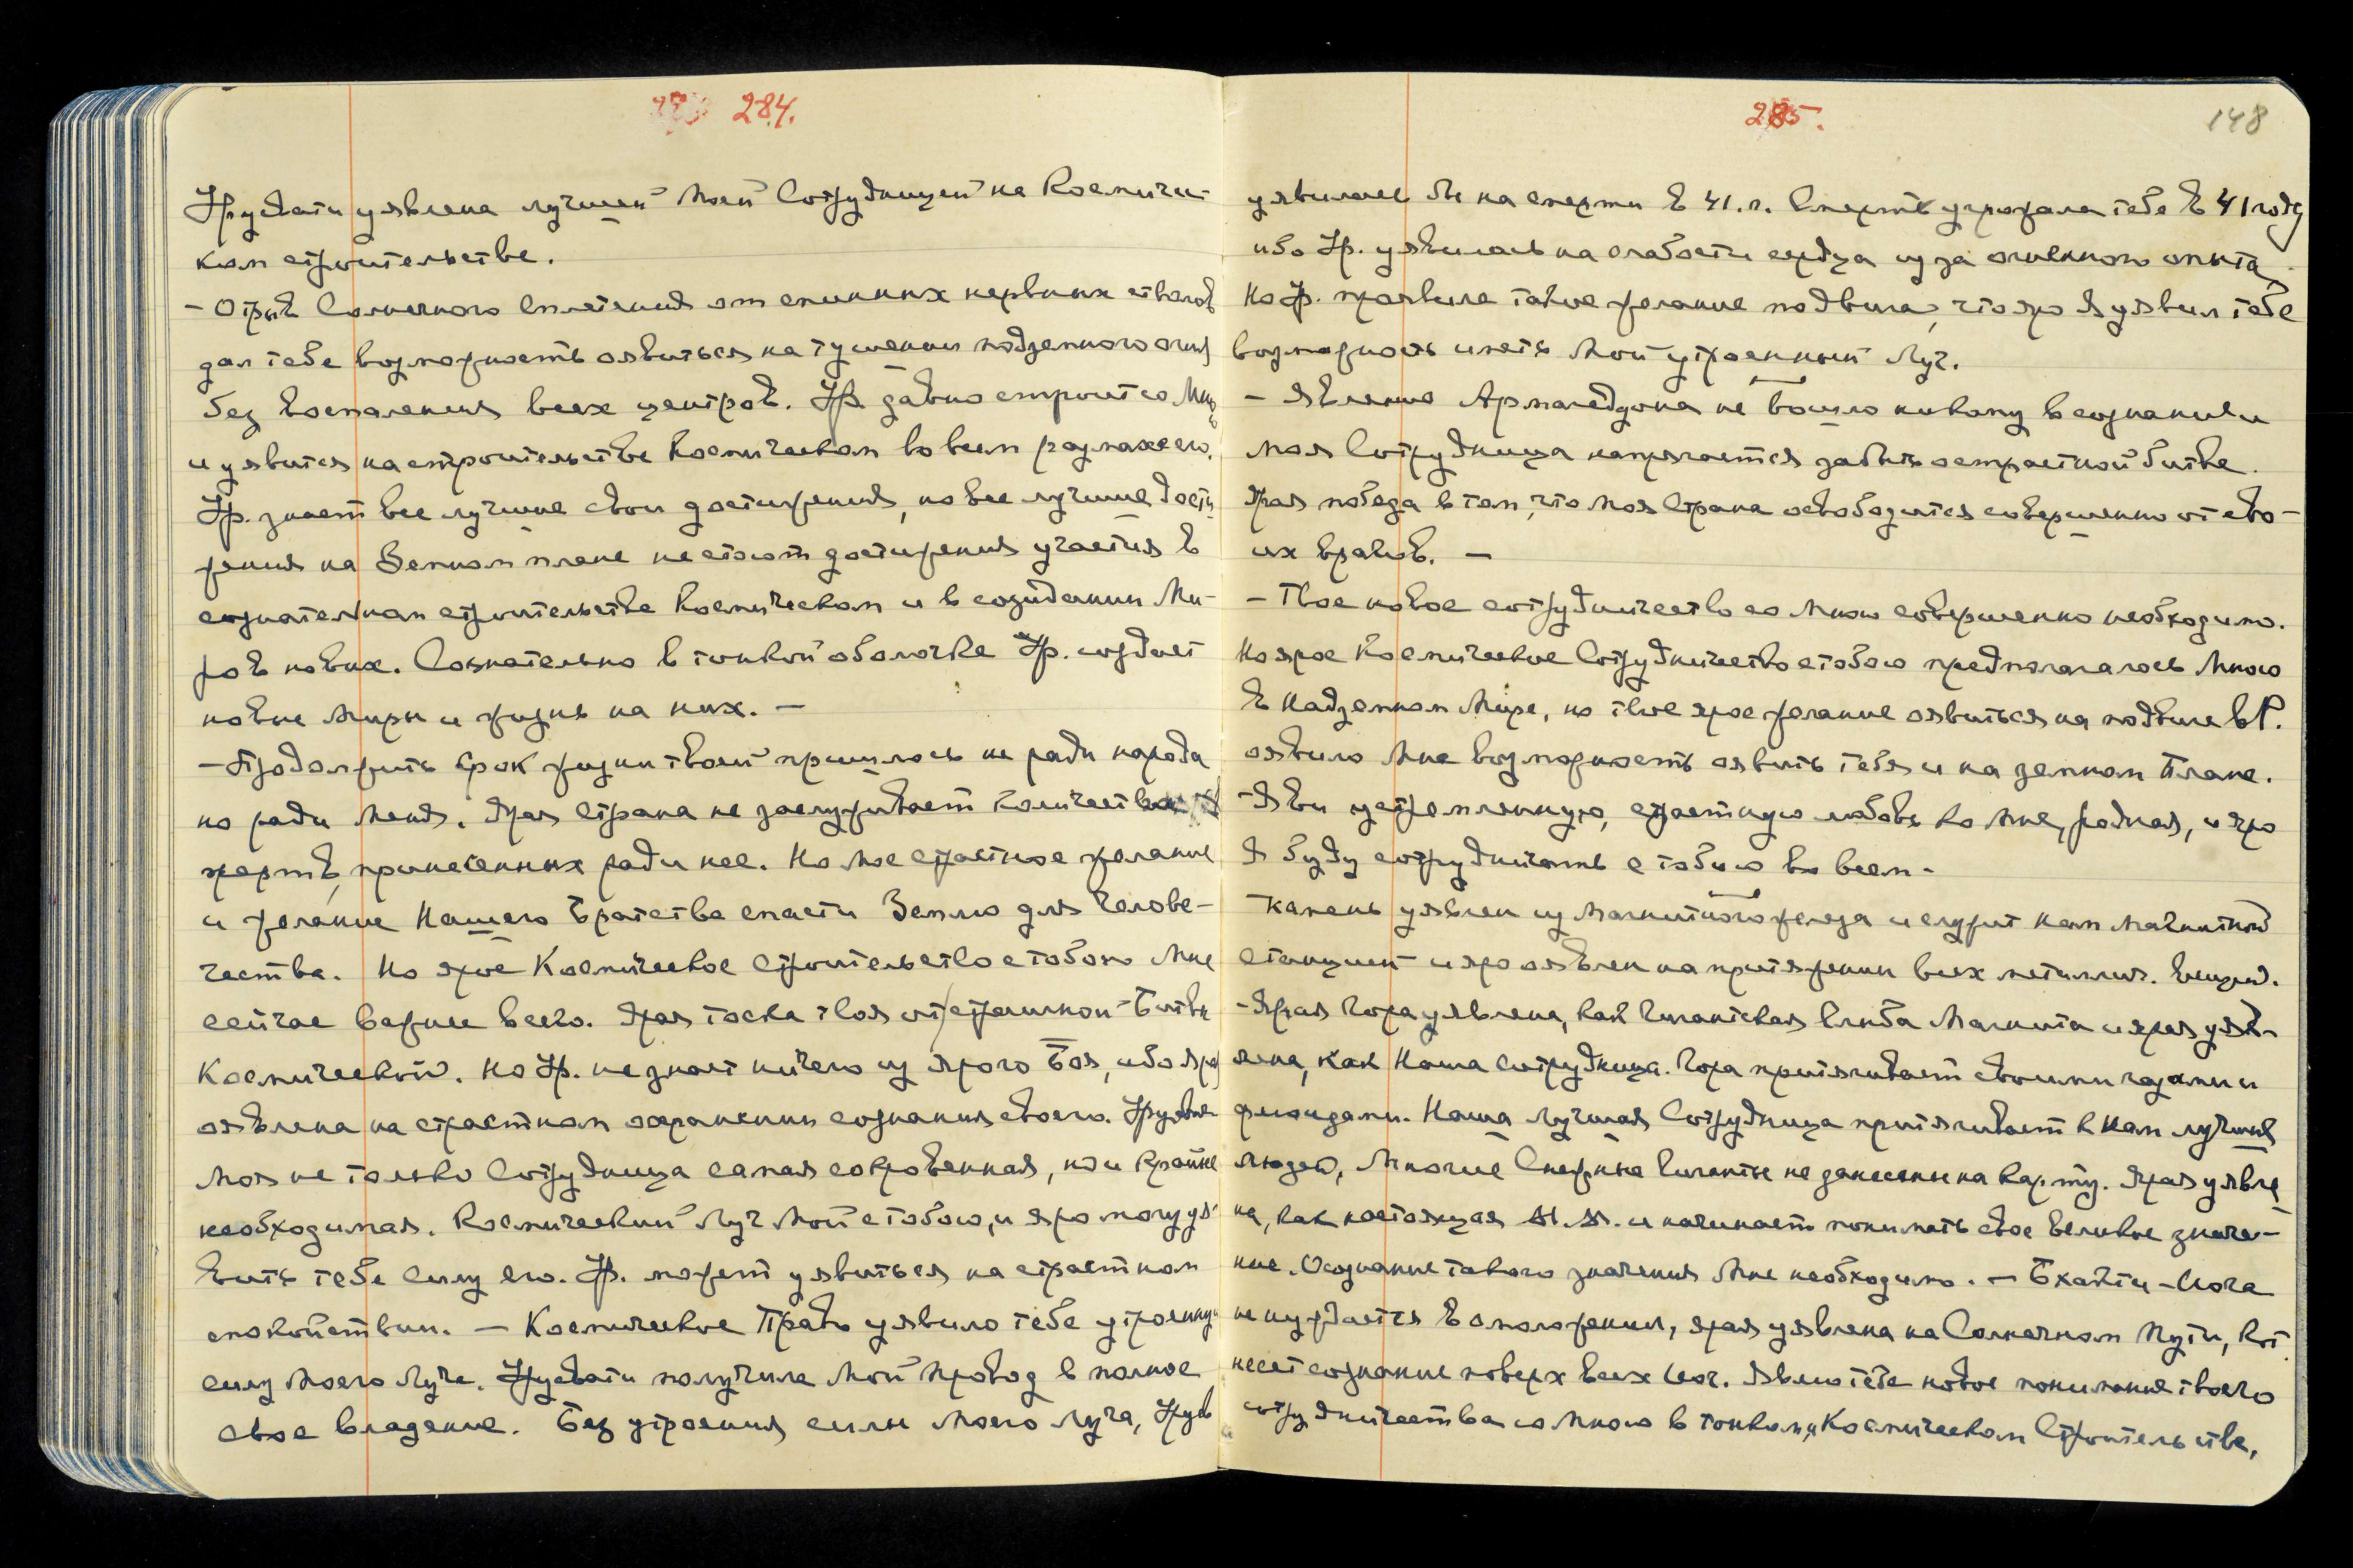 284.
Урусвати уявлена лучшей Моей Сотрудницей на Космичес-
ком строительстве.
- Отрыв Солнечного Сплетения от спинных нервных стволов
дал тебе возможность оявиться на тушении подземного огня
без воспаления всех центров. Ур. давно строит со Мною
и уявится на строительстве Космическом во всем размахе его.
Ур. знает все лучшие свои достижения, но все лучшие дости-
жения на Земном плане не стоят достижения участия в
сознательном строительстве Космическом и в создании Ми-
ров новых. Сознательно в тонкой оболочке Ур. создает
новые миры и жизнь на них. —
- Продолжить срок жизни твоей пришлось не ради народа
но ради Меня. Ярая страна не заслуживает количества
жертв, принесенных ради нее. Но Мое страстное желание
и желание Нашего Братства спасти Землю для Челове-
чества. Но ярое Космическое Строительство с тобою Мне
сейчас важнее всего. Ярая тоска твоя от страшной Битвы
Космической. Но Ур. не знает ничего из ярого Боя, ибо яро
оявлена на страстном охранении сознания своего. Урусвати
Моя не только Сотрудница самая сокровенная, но и крайне
необходимая. Космический Луч Мой с тобою, и яро могу уя-
вить тебе силу его. Ур. может уявиться на страстном
спокойствии. — Космическое Право уявило тебе утроенную
силу Моего Луча. Урусвати получила Мой провод в полное
свое владение. Без утроения силы Моего Луча, Урусв.
285.
148
уявилась бы на смерти в 41.г. Смерть угрожала тебе в 41 году
ибо Ур. уявилась на слабости сердца из за огненного опыта.
Но Ур. проявила такое желание подвига, что яро Я уявил тебе
возможность иметь Мой утроенный Луч.
- Явление Армагеддона не вошло никому в сознание и
Моя Сотрудница напрягается забыть о страстной битве.
Ярая победа в том, что Моя Страна освободится совершенно от сво-
их врагов. —
- Твое новое сотрудничество со Мною совершенно необходимо.
Но ярое Космическое Сотрудничество с тобою предполагалось Мною
в Надземном Мире, но твое ярое желание оявиться на подвиге в Р.
оявило Мне возможность оявить тебя и на земном плане.
- Яви устремленную, страстную любовь ко Мне, родная, и яро
Я буду сотрудничать с тобою во всем.
- Камень уявлен из магнитного железа и служит нам магнитной
станцией и яро оявлен на притяжении всех металлич. вещей.
- Ярая Гора уявлена, как гигантская глыба Магнита и ярая уяв-
лена, как Наша сотрудница. Гора притягивает своими газами и
флюидами. Наша лучшая Сотрудница притягивает к Нам лучших
людей, Многие Снежные Гиганты не занесены на карту. Ярая уявле
на, как настоящая М.М. и начинает понимать свое великое значе-
ние. Осознание такого значения Мне необходимо. — Бхакти-Йога
не нуждается в омоложении, ярая уявлена на Солнечном Пути, кот.
несет сознание поверх всех Йог. Являю тебе новое понимание твоего
сотрудничества со Мною в тонком, и Космическом Строительстве,